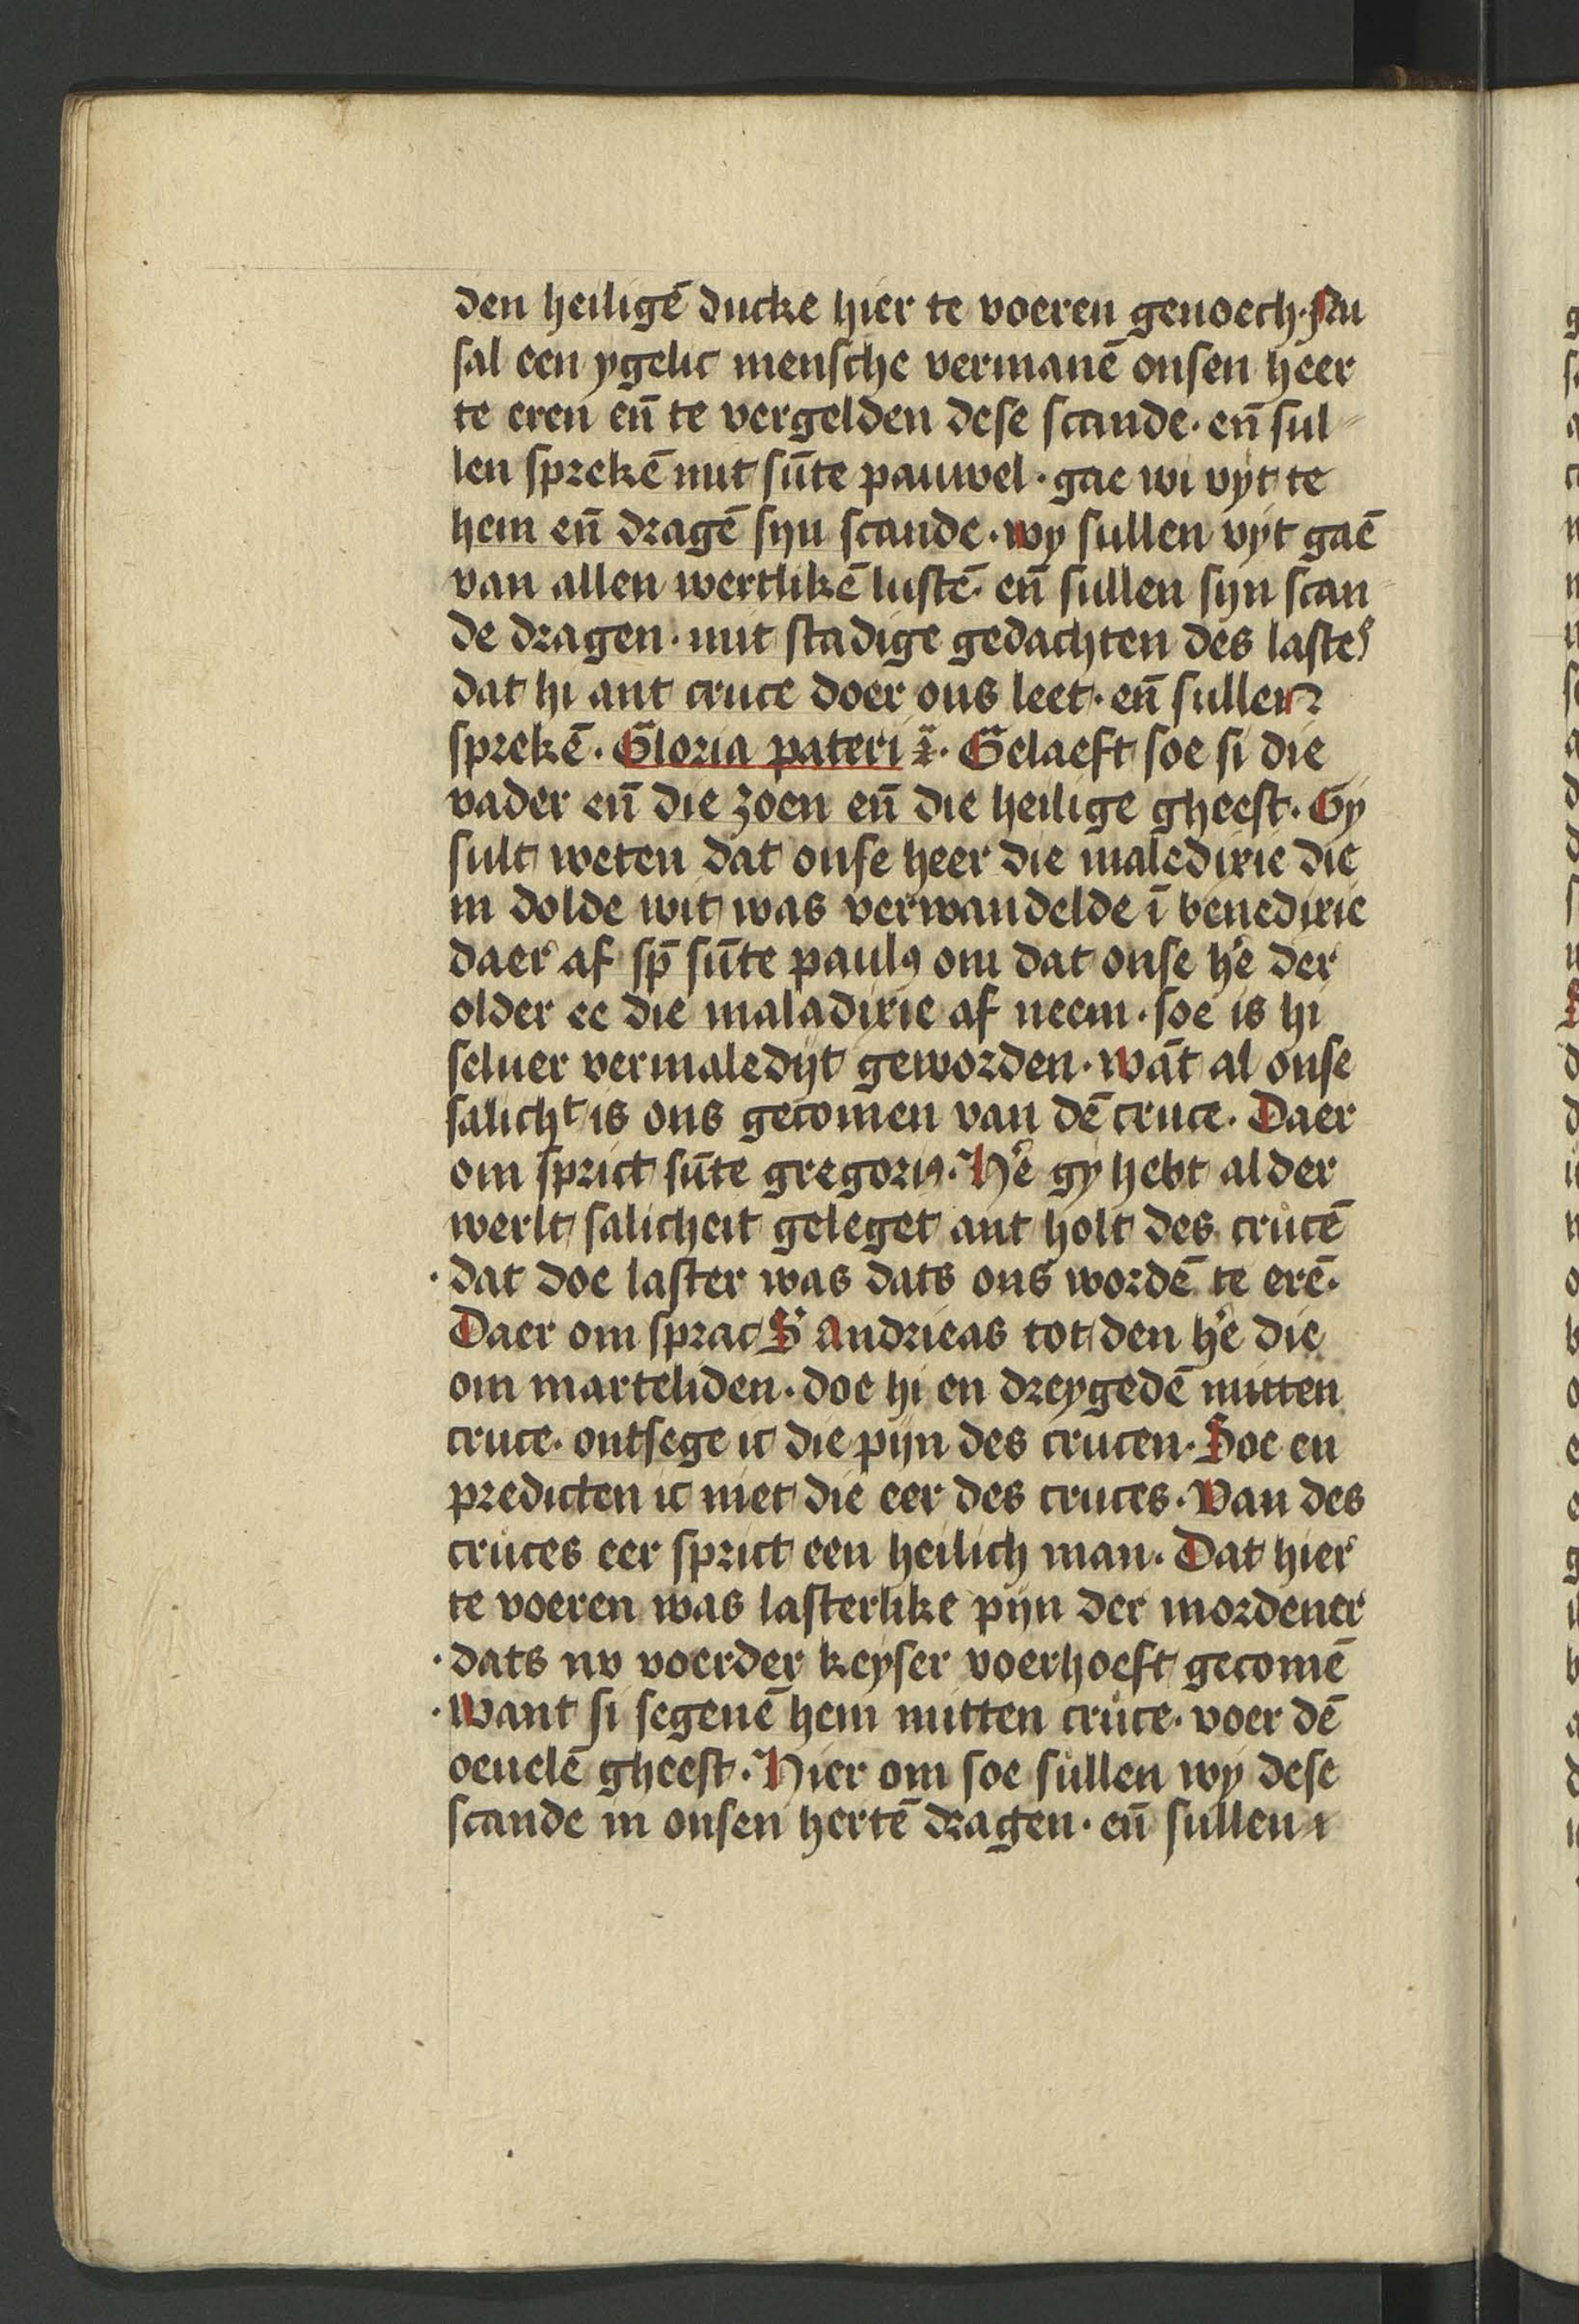 den heiligē ducke hier te voeren genoech. Nu
sal een ygelic mensche vermanē onsen heer
te eren en̄ te vergelden dese scande. en̄ sul
len sprekē mit sūte pauwel. gae wi vyt te
hem en̄ dragē syn scande. wy sullen vyt gaē
van allen wertlikē lustē. en̄ sullen syn scan
de dragen. mit stadige gedachten des lasters
dat hi ant cruce doer ons leet. en̄ sullen
sprekē. Gloria pateri ⁊. Gelaeft soe si die
vader en̄ die zoen en̄ die heilige gheest. Gy
sult weten dat onse heer die maledixie die
in dolde wit was verwandelde ī benedixie
daer af sp̄ sūte paulꝯ om dat onse h'e der
older ee die maladixie af neem. soe is hi
seluer vermaledyt geworden. wāt al onse
salichᵗ is ons gecomen van dē cruce. Daer
om sprict sūte gregoriꝯ. H'e gy hebt al der
werlt salicheit geleget ant holt des crucē
dat doe laster was dats ons wordē te erē.
Daer om sprac S' Andrieas tot den h'e die
om marteliden. doe hi en dreygedē mitten
cruce. ontsege ic die pijn des crucen. Soe en
predicten ic niet die eer des cruces. Van des
cruces eer sprict een heilich man. Dat hier
te voeren was lasterlike pijn der mordener
dats nv voerder keyser voerhoeft gecomē
Want si segenē hem mitten cruce. voer dē
oeuelē gheest. Hier om soe sullen wy dese
scande in onsen hertē dragen. en̄ sullen